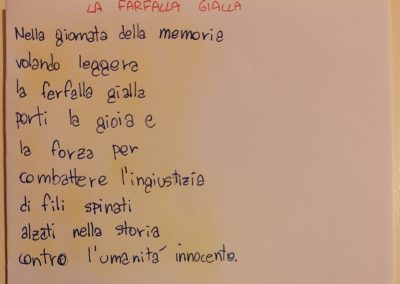 LA FARFALLA GIALLA
Nella giornata della memoria
volando leggera
la farfalla gialla
porti la gioia e
la forza per
combattere l'ingiustizia
di fili spinati
alzati nella storia
contro l'umanità innocente.